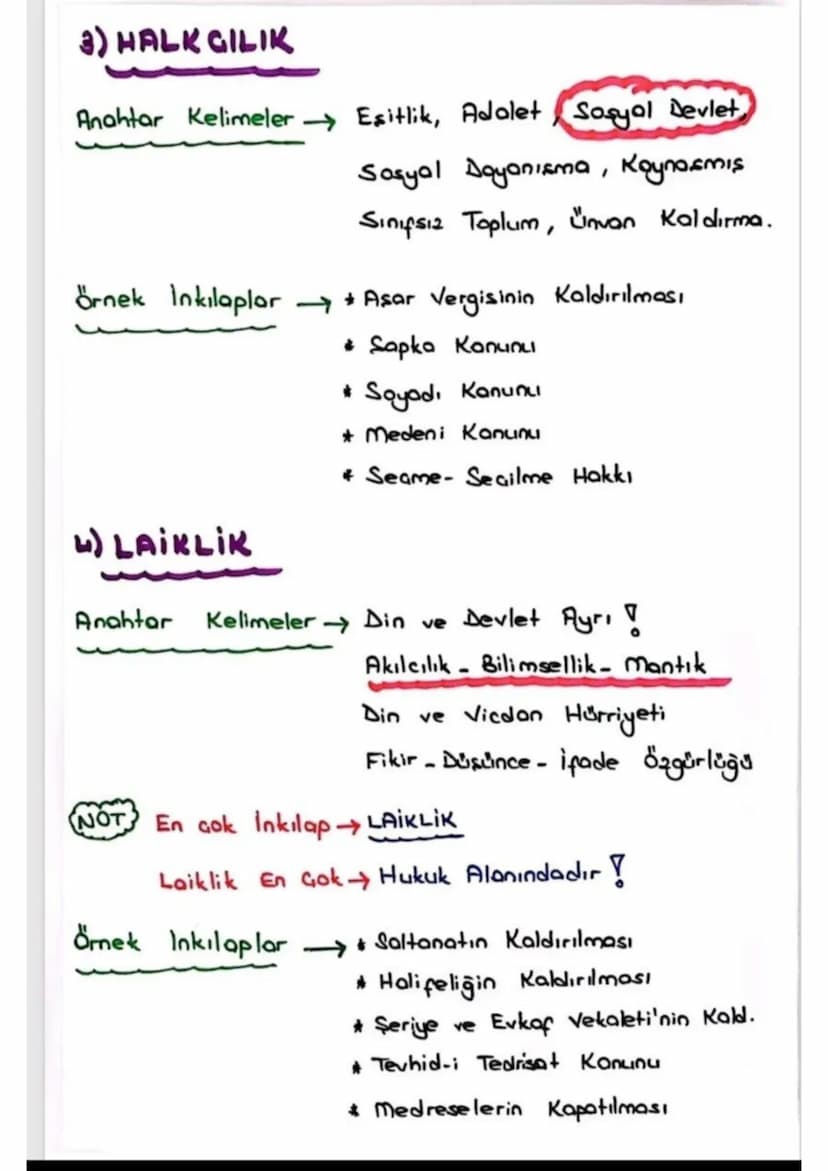 3) HALKÇILIK
Anahtar Kelimeler → Eşitlik, Adalet, Sosyal Devlet,
Sosyal Dayanışma, Kaynaşmış
Sınıfsız Toplum, Ünvan Kaldırma.
Örnek İnkılaplar → * Aşar Vergisinin Kaldırılması
* Şapka Kanunu
* Soyadı Kanunu
* Medeni Kanunu
* Seçme- Seçilme Hakkı
4) LAİKLİK
Anahtar Kelimeler → Din ve Devlet Ayrı !
Akılcılık - Bilimsellik - Mantık
Din ve Vicdan Hürriyeti
Fikir - Düşünce - İfade Özgürlüğü
NOT En çok İnkılap → LAİKLİK
Laiklik En Çok → Hukuk Alanındadır !
Örnek İnkılaplar → * Saltanatın Kaldırılması
* Halifeliğin Kaldırılması
* Şeriye ve Evkaf Vekaleti'nin Kald.
* Tevhid-i Tedrisat Kanunu
* Medreselerin Kapatılması